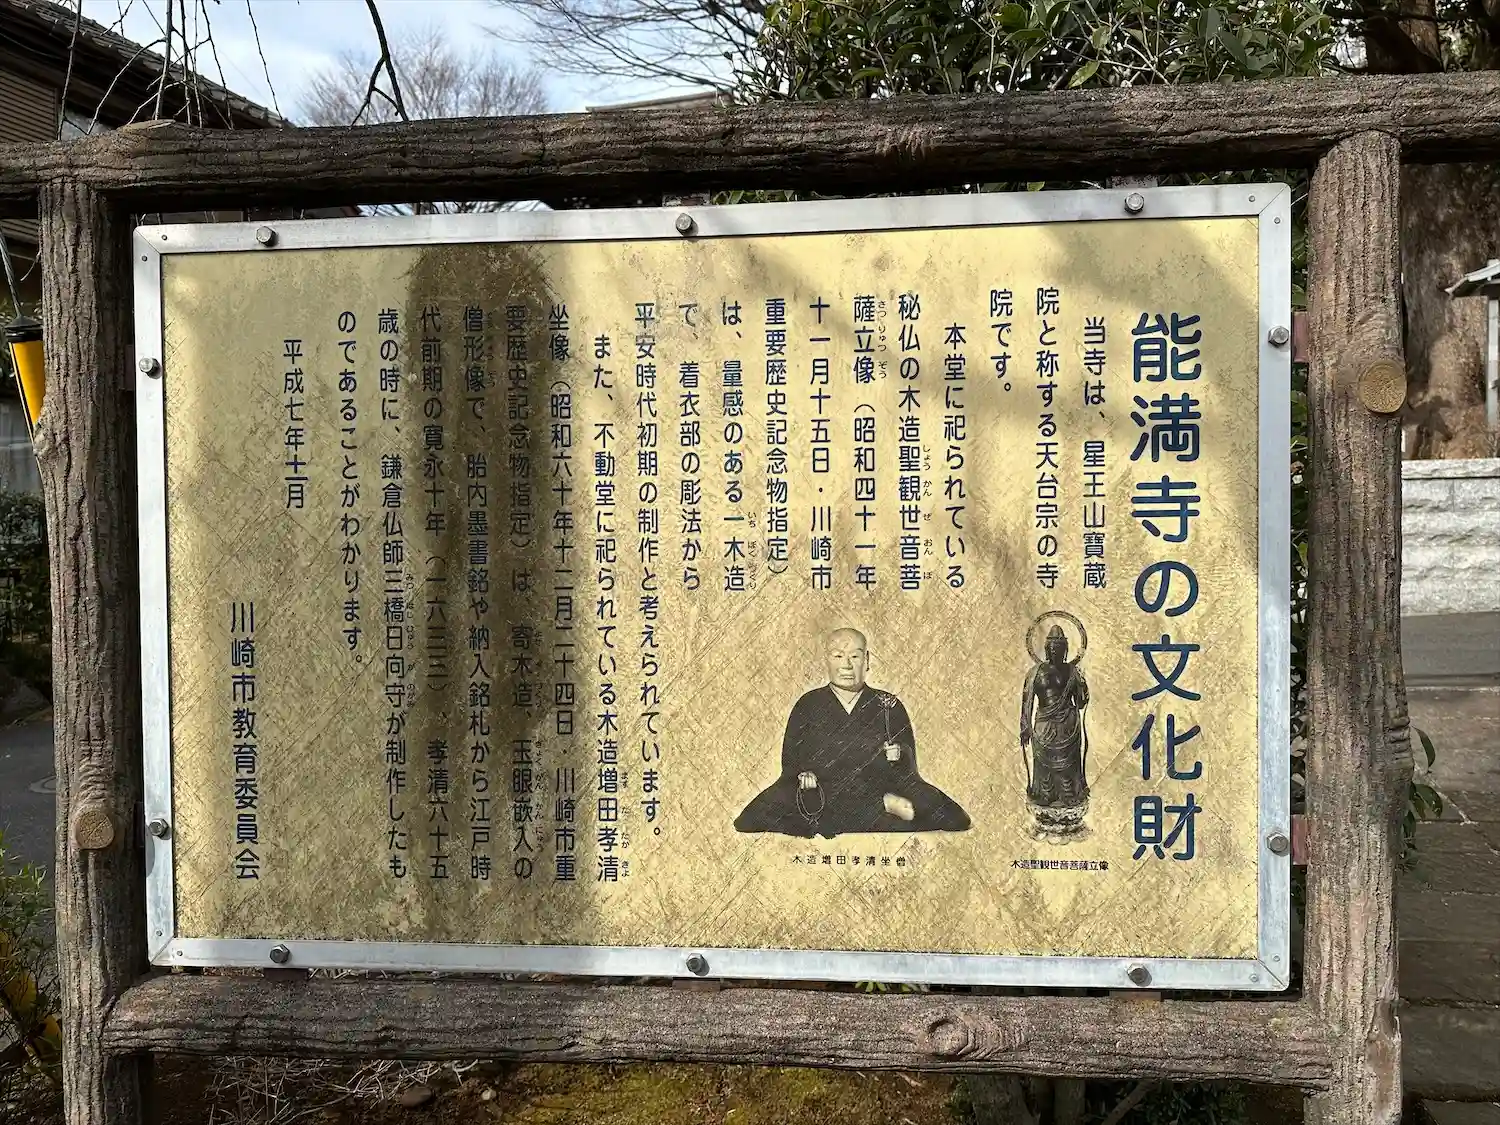 能満寺の文化財
当寺は、星王山寶蔵
院と称する天台宗の寺
院です。
本堂に祀られている
秘仏の木造聖観世音菩
薩立像（昭和四十一年
十一月十五日・川崎市
重要歴史記念物指定）
は、量感のある一木造
で、着衣部の彫法から
平安時代初期の制作と考えられています。
また、不動堂に祀られている木造増田孝清
坐像（昭和六十年十二月二十四日・川崎市重
要歴史記念物指定）は、寄木造、玉眼嵌入の
僧形像で、胎内墨書銘や納入銘札から江戸時
代前期の寛永十年（一六三三）、孝清六十五
歳の時に、鎌倉仏師三橋日向守が制作したも
のであることがわかります。
平成七年十二月
川崎市教育委員会
木造増田孝清坐像
木造聖観世音菩薩立像